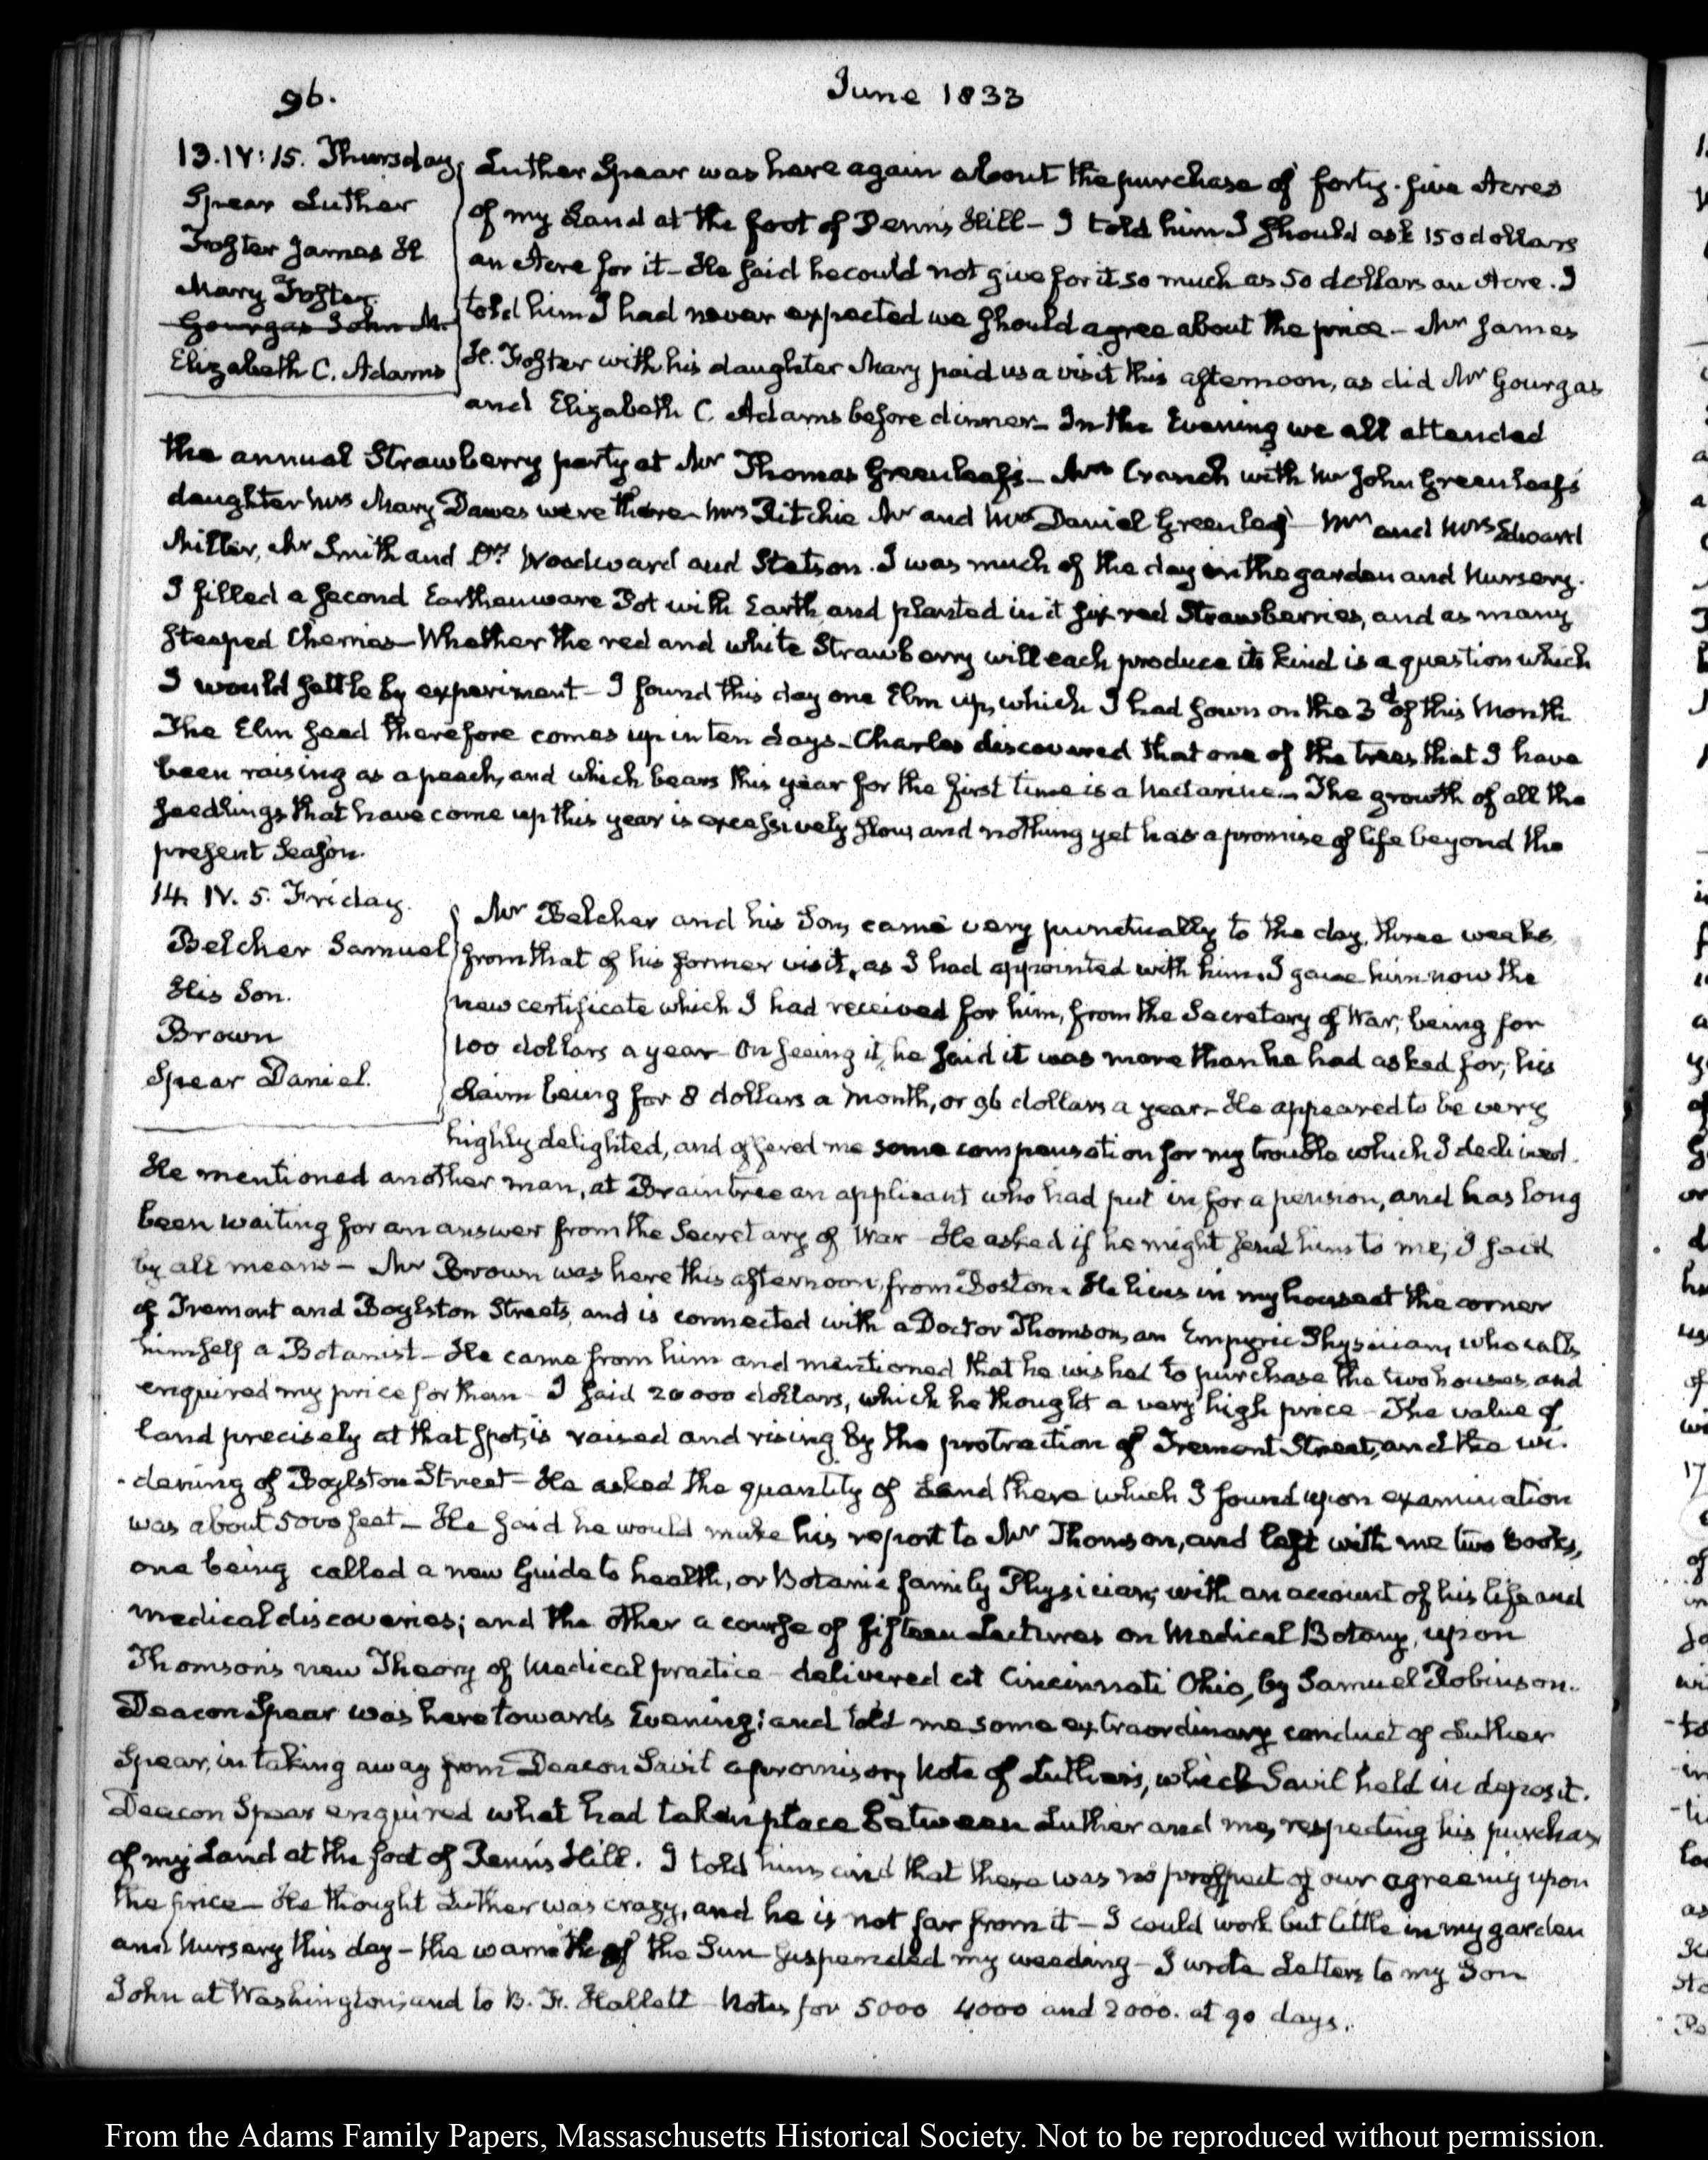 96.
June 1833
13. IV: 15. Thursday
Spear Luther
Foster James H
Mary Foster
Gourgas John M.
Elizabeth C. Adams
Luther Spear was here again about the purchase of forty-five Acres
of my Land at the foot of Penn's Hill – I told him I should ask 150 dollars
an Acre for it – He said he could not give for it so much as 50 dollars an Acre. I
told him I had never expected we should agree about the price – Mr James
H. Foster with his daughter Mary paid us a visit this afternoon, as did Mr Gourgas
and Elizabeth C. Adams before dinner – In the Evening we all attended
the annual Strawberry party at Mr Thomas Greenleaf's – Mrs Cranch with Mr John Greenleaf's
daughter Mrs Mary Dawes were there – Mrs Ritchie Mr and Mrs Daniel Greenleaf – Mr and Mrs Edward
Miller, Mr Smith and Drs Woodward and Stetson. I was much of the day in the garden and Nursery.
I filled a second Earthenware Pot with Earth, and planted in it six red Strawberries, and as many
steeped Cherries – Whether the red and white Strawberry will each produce its kind is a question which
I would settle by experiment – I found this day one Elm up, which I had sown on the 3d of this Month
The Elm seed therefore comes up in ten days – Charles discovered that one of the trees that I have
been raising as a peach, and which bears this year for the first time is a Nectarine. – The growth of all the
seedlings that have come up this year is excessively slow, and nothing yet has a promise of life beyond the
present Season.
14. IV. 5. Friday.
Belcher Samuel
His Son.
Brown
Spear Daniel.
Mr Belcher and his Son, came very punctually to the day, three weeks
from that of his former visit, as I had appointed with him. I gave him now the
new certificate which I had received for him, from the Secretary of War; being for
100 dollars a year – On seeing it, he said it was more than he had asked for; his
claim being for 8 dollars a Month, or 96 dollars a year – He appeared to be very
highly delighted, and offered me some compensation for my trouble which I declined.
He mentioned another man, at Braintree an applicant who had put in for a pension, and has long
been waiting for an answer from the Secretary of War – He asked if he might send him to me; I said
by all means – Mr Brown was here this afternoon, from Boston. He lives in my house at the corner
of Tremont and Boylston Streets, and is connected with a Doctor Thomson, an Empyric Physician, who calls
himself a Botanist – He came from him and mentioned that he wished to purchase the two houses, and
enquired my price for them – I said 20000 dollars, which he thought a very high price – The value of
land precisely at that spot, is raised and rising by the protraction of Tremont Street, and the wi-
-dening of Boylston Street – He asked the quantity of Land there which I found upon examination
was about 5000 feet – He said he would make his report to Mr Thomson, and left with me two Books,
one being called a new Guide to health, or Botanic family Physician; with an account of his life and
medical discoveries; and the other a course of fifteen Lectures on Medical Botany, upon
Thomson's new Theory of Medical practice – delivered at Cincinnati Ohio, by Samuel Robinson.
Deacon Spear was here towards Evening; and told me some extraordinary conduct of Luther
Spear, in taking away from Deacon Savil a promissory Note of Luther's, which Savil held in deposit.
Deacon Spear enquired what had taken place between Luther and me, respecting his purchase
of my Land at the foot of Penn's Hill. I told him and that there was no prospect of our agreeing upon
the price – He thought Luther was crazy, and he is not far from it – I could work but little in my garden
and Nursery this day – the warmth of the Sun suspended my weeding – I wrote Letters to my Son
John at Washington, and to B. F. Hallett – Notes for 5000 4000 and 2000. at 90 days.
From the Adams Family Papers, Massachusetts Historical Society. Not to be reproduced without permission.